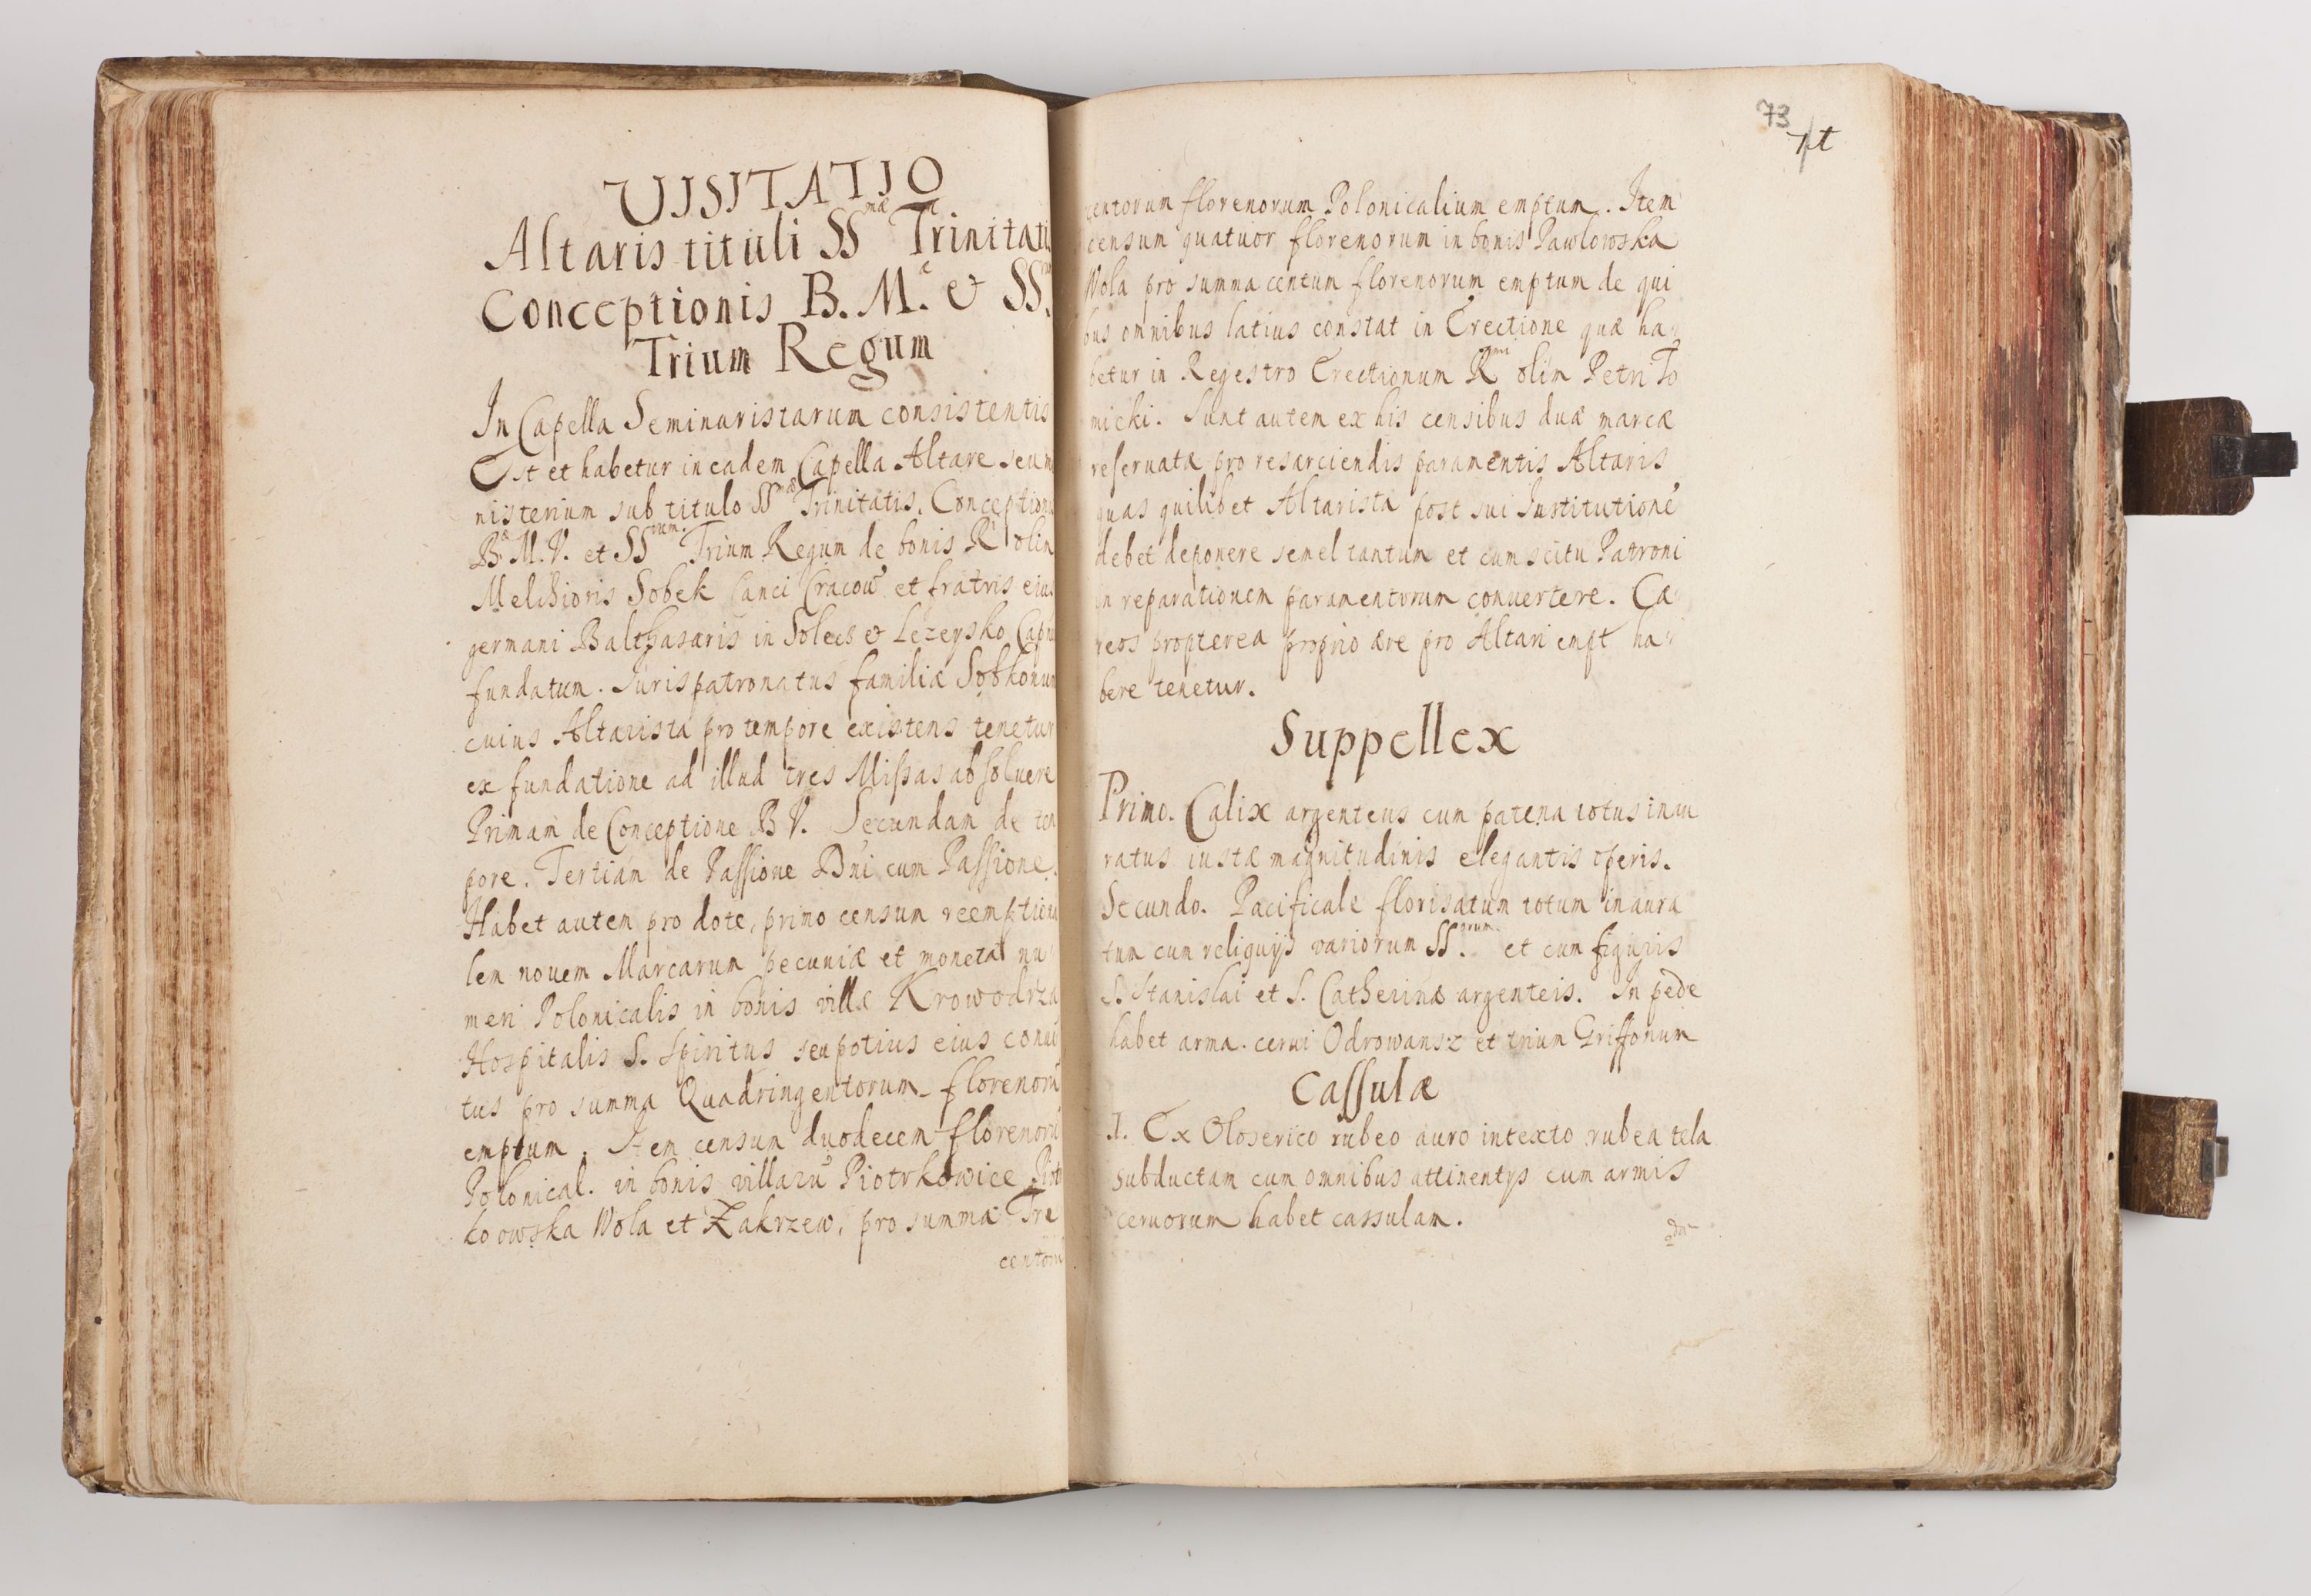 VISITATIO
Altaris tituli SSmæ Trinitatis
Conceptionis B. M.æ & SS.
Trium Regum
In Capella Seminaristarum consistentis
Est et habetur in eadem Capella Altare seu mi
nisterium sub titulo SSmæ Trinitatis, Conceptionis
Bæ M. V. et SSrum Trium Regum de bonis Rdi olim
Melchioris Sobek Canci Cracou et fratris eius
germani Balthasaris in Solecz & Lezeysko Capnei
fundatum. Jurispatronatus familiæ Sobkonum
cuius Altarista pro tempore existens tenetur
ex fundatione ad illud tres Missas absoluere
Primam de Conceptione B V. Secundam de tem
pore. Tertiam de Passione Dni cum Passione.
Habet autem pro dote, primo censum reemptiona
lem nouem Marcarum pecuniæ et monetæ nu
meri Polonicalis in bonis villæ Krowodrza
Hospitalis S. Spiritus seu potius eius conuen
tus pro summa Quadringentorum florenorũ
emptum. Item censum duodecem florenorũ
Polonical. in bonis villarũ Piotrkowice Piotr
kowska Wola et Zakrzew, pro summa Tre
centorũ
73
71
centorum florenorum Polonicalium emptum. Item
censum quatuor florenorum in bonis Pawlowska
Wola pro summa centum florenorum emptum de qui
bus omnibus latius constat in Erectione quæ ha-
betur in Regestro Erectionum Rmi olim Petri To
micki. Sunt autem ex his censibus duæ marcæ
reseruatæ pro resarciendis paramentis Altaris
quas quilibet Altarista post sui Institutionẽ
debet deponere semel tantum et cum scitu Patroni
in reparationem paramentorum conuertere. Cæ-
reos propterea proprio ære pro Altari empt ha-
bere tenetur.
Suppellex
Primo. Calix argenteus cum patena totus inau
ratus iustæ magnitudinis elegantis operis.
Secundo. Pacificale florisatum totum inaura
tum cum reliquijs variorum SS.orum et cum figuris
S. Stanislai et S. Catherinæ argenteis. In pede
habet arma. cerui Odrowansz et trium Griffonum
Cassulæ
1. Ex Oloserico rubeo auro intexto rubea tela
subductam cum omnibus attinentijs cum armis
ceruorum habet cassulam.